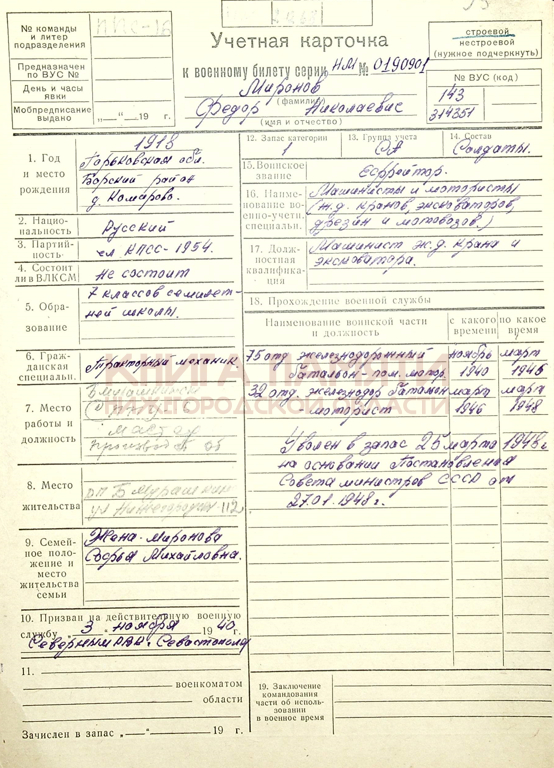 № команды
и литер
подразделения
Предназначен
по ВУС №
День и часы
явки
Мобпредписание
выдано „—“ 19 г.
Учетная карточка
к военному билету серии НМ № 0190901
Миронов
(фамилия)
Федор Николаевич
(имя и отчество)
строевой
нестроевой
(нужное подчеркнуть)
№ ВУС (код)
143
314351
1. Год
и место
рождения
1918
Горьковская обл.
Борский район
д. Комарово.
2. Нацио-
нальность
Русский
3. Партий-
ность
чл КПСС-1954.
4. Состоит
ли в ВЛКСМ
не состоит
5. Обра-
зование
7 классов семилет-
ней школы.
6. Граж-
данская
специальн.
Тракторный механик
7. Место
работы и
должность
мастер
8. Место
жительства
рп Б Мурашкино
ул Нижегородская-112
9. Семей-
ное поло-
жение и
место
жительства
семьи
Жена-Миронова
Софья Михайловна.
10. Призван на действительную военную
службу 3 ноября 1940 г.
Северным РВК г. Севастополь
11.
военкоматом
области
Зачислен в запас „—“ 19 г.
12. Запас категории
1
13. Группа учета
СА
14. Состав
Солдаты.
15. Воинское
звание
Ефрейтор.
16. Наиме-
нование во-
енно-учетн.
специальн.
Машинисты и мотористы
(ж.д. кранов, экскаваторов,
дрезин и мотовозов.)
17. Долж-
ностная
квалифика-
ция
Машинист ж.д. крана и
экскаватора.
18. Прохождение военной службы
Наименование воинской части
и должность
с какого
времени
по какое
время
75 отд. железнодорожный ноябрь март
батальон-пом. мотор. 1940 1946
32 отд. железнодор батальон март март
моторист 1946 1948
Уволен в запас 25 марта 1948г.
на основании Постановления
Совета министров СССР от
27.01-1948г.
19. Заключение
командования
части об исполь-
зовании
в военное время
КНИГА ПАМЯТИ
НИЖЕГОРОДСКОЙ ОБЛАСТИ